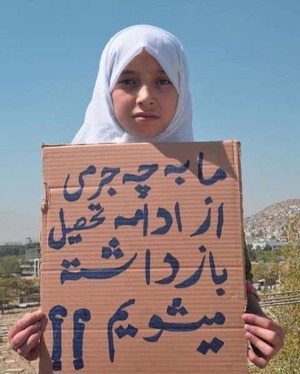 ما به چه جرمی
از ادامه تحصیل
بازداشته
میشویم ؟؟